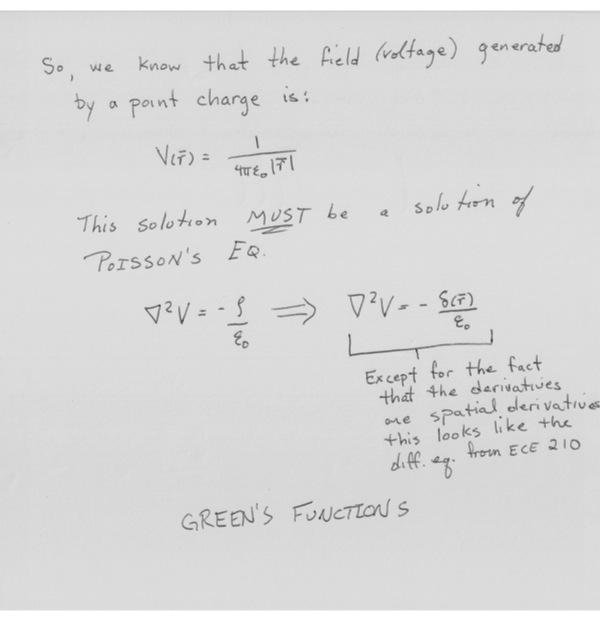 So, we know that the field (voltage) generated
by a point charge is:
V(r̄) = 1 / 4πε₀|r̄|
This solution MUST be a solution of
POISSON'S EQ.
∇²V = - ρ/ε₀ ⟹ ∇²V = - δ(r̄)/ε₀
Except for the fact
that the derivatives
are spatial derivatives
this looks like the
diff. eq. from ECE 210
GREEN'S FUNCTIONS